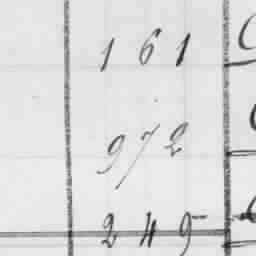 161
972
249